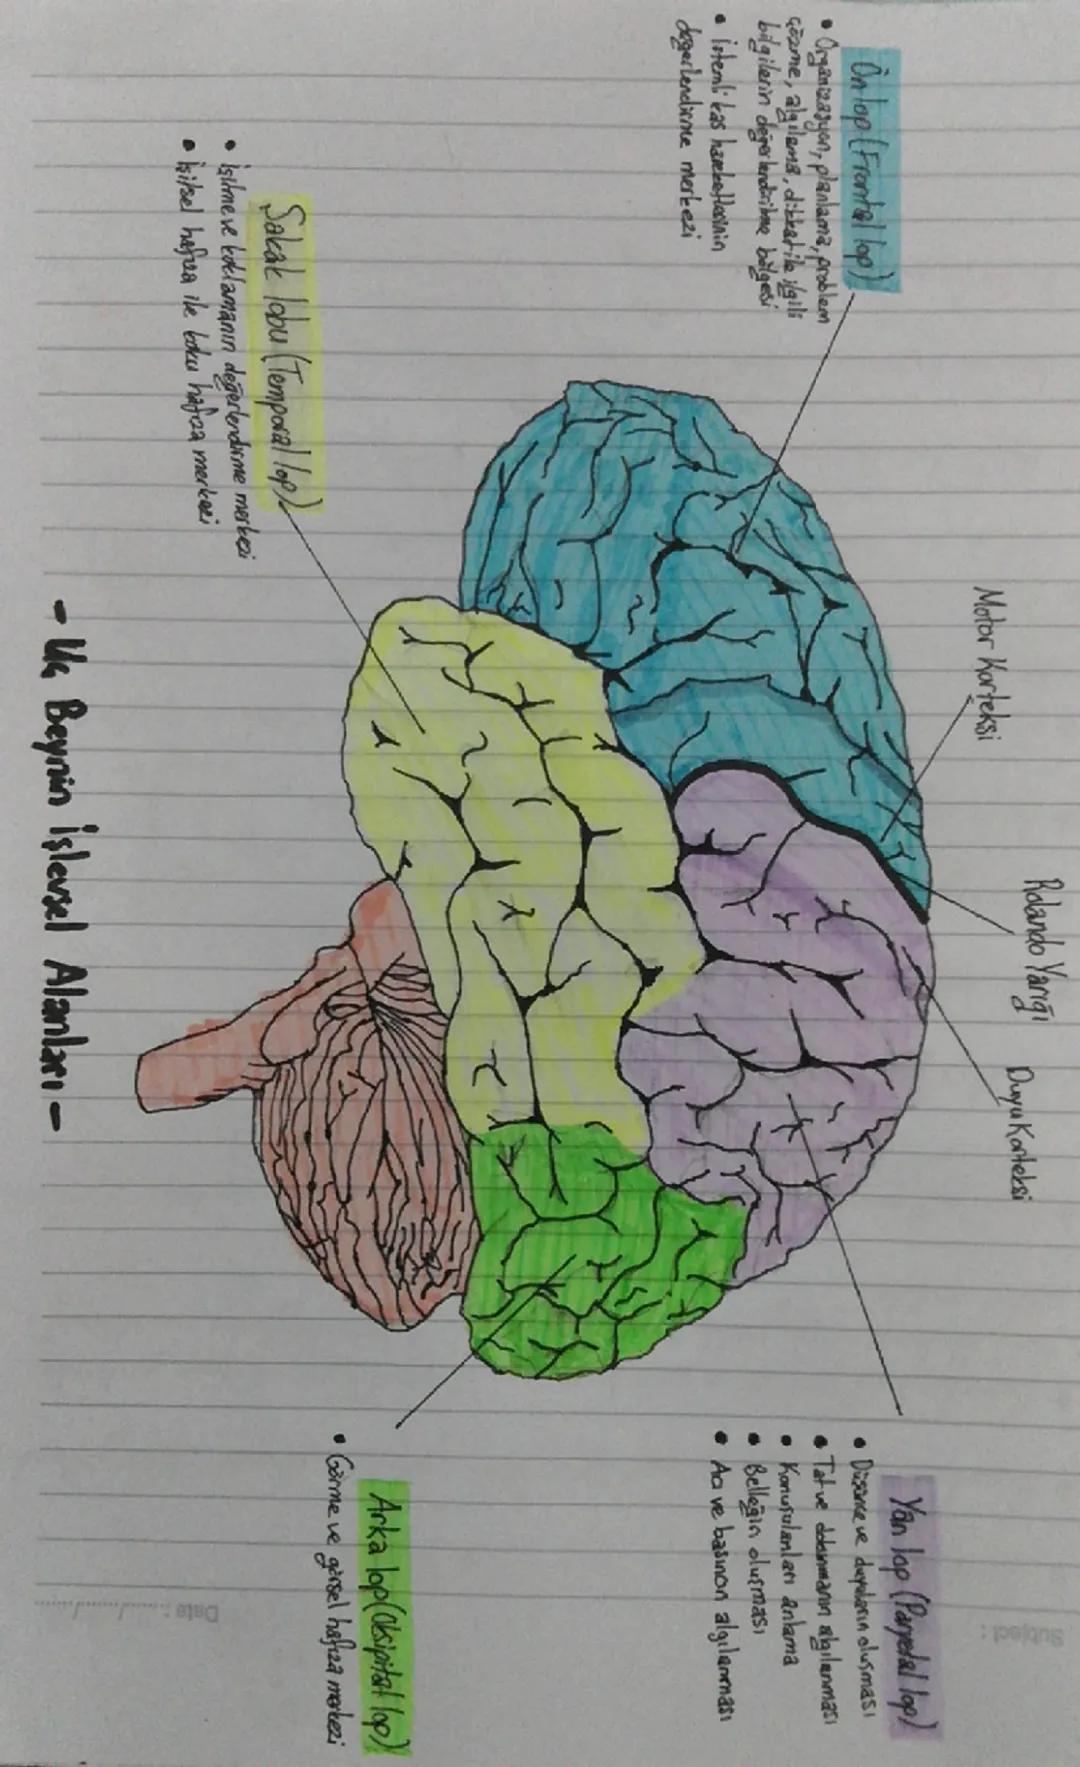 Motor Korteksi
Rolando Yarığı
Duyu Korteksi
Ön lop (Frontal lop)
• Organizasyon, planlama, problem
çözme, algılama, dikkat ile ilgili
bilgilerin değerlendirilme bölgesi
• İstemli kas hareketlerinin
değerlendirme merkezi
Yan lop (Paryetal lop)
• Düşünce ve duyuların oluşması
• Tat ve dokunmanın algılanması
• Konuşulanları anlama
• Belleğin oluşması
• Acı ve basıncın algılanması
Şakak lobu (Temporal lop)
• İşitme ve koklamanın değerlendirme merkezi
• İşitsel hafıza ile koku hafıza merkezi
Arka lop (Oksipital lop)
• Görme ve görsel hafıza merkezi
- Uç Beynin İşlevsel Alanları -
Subject :
Date : ....../....../......